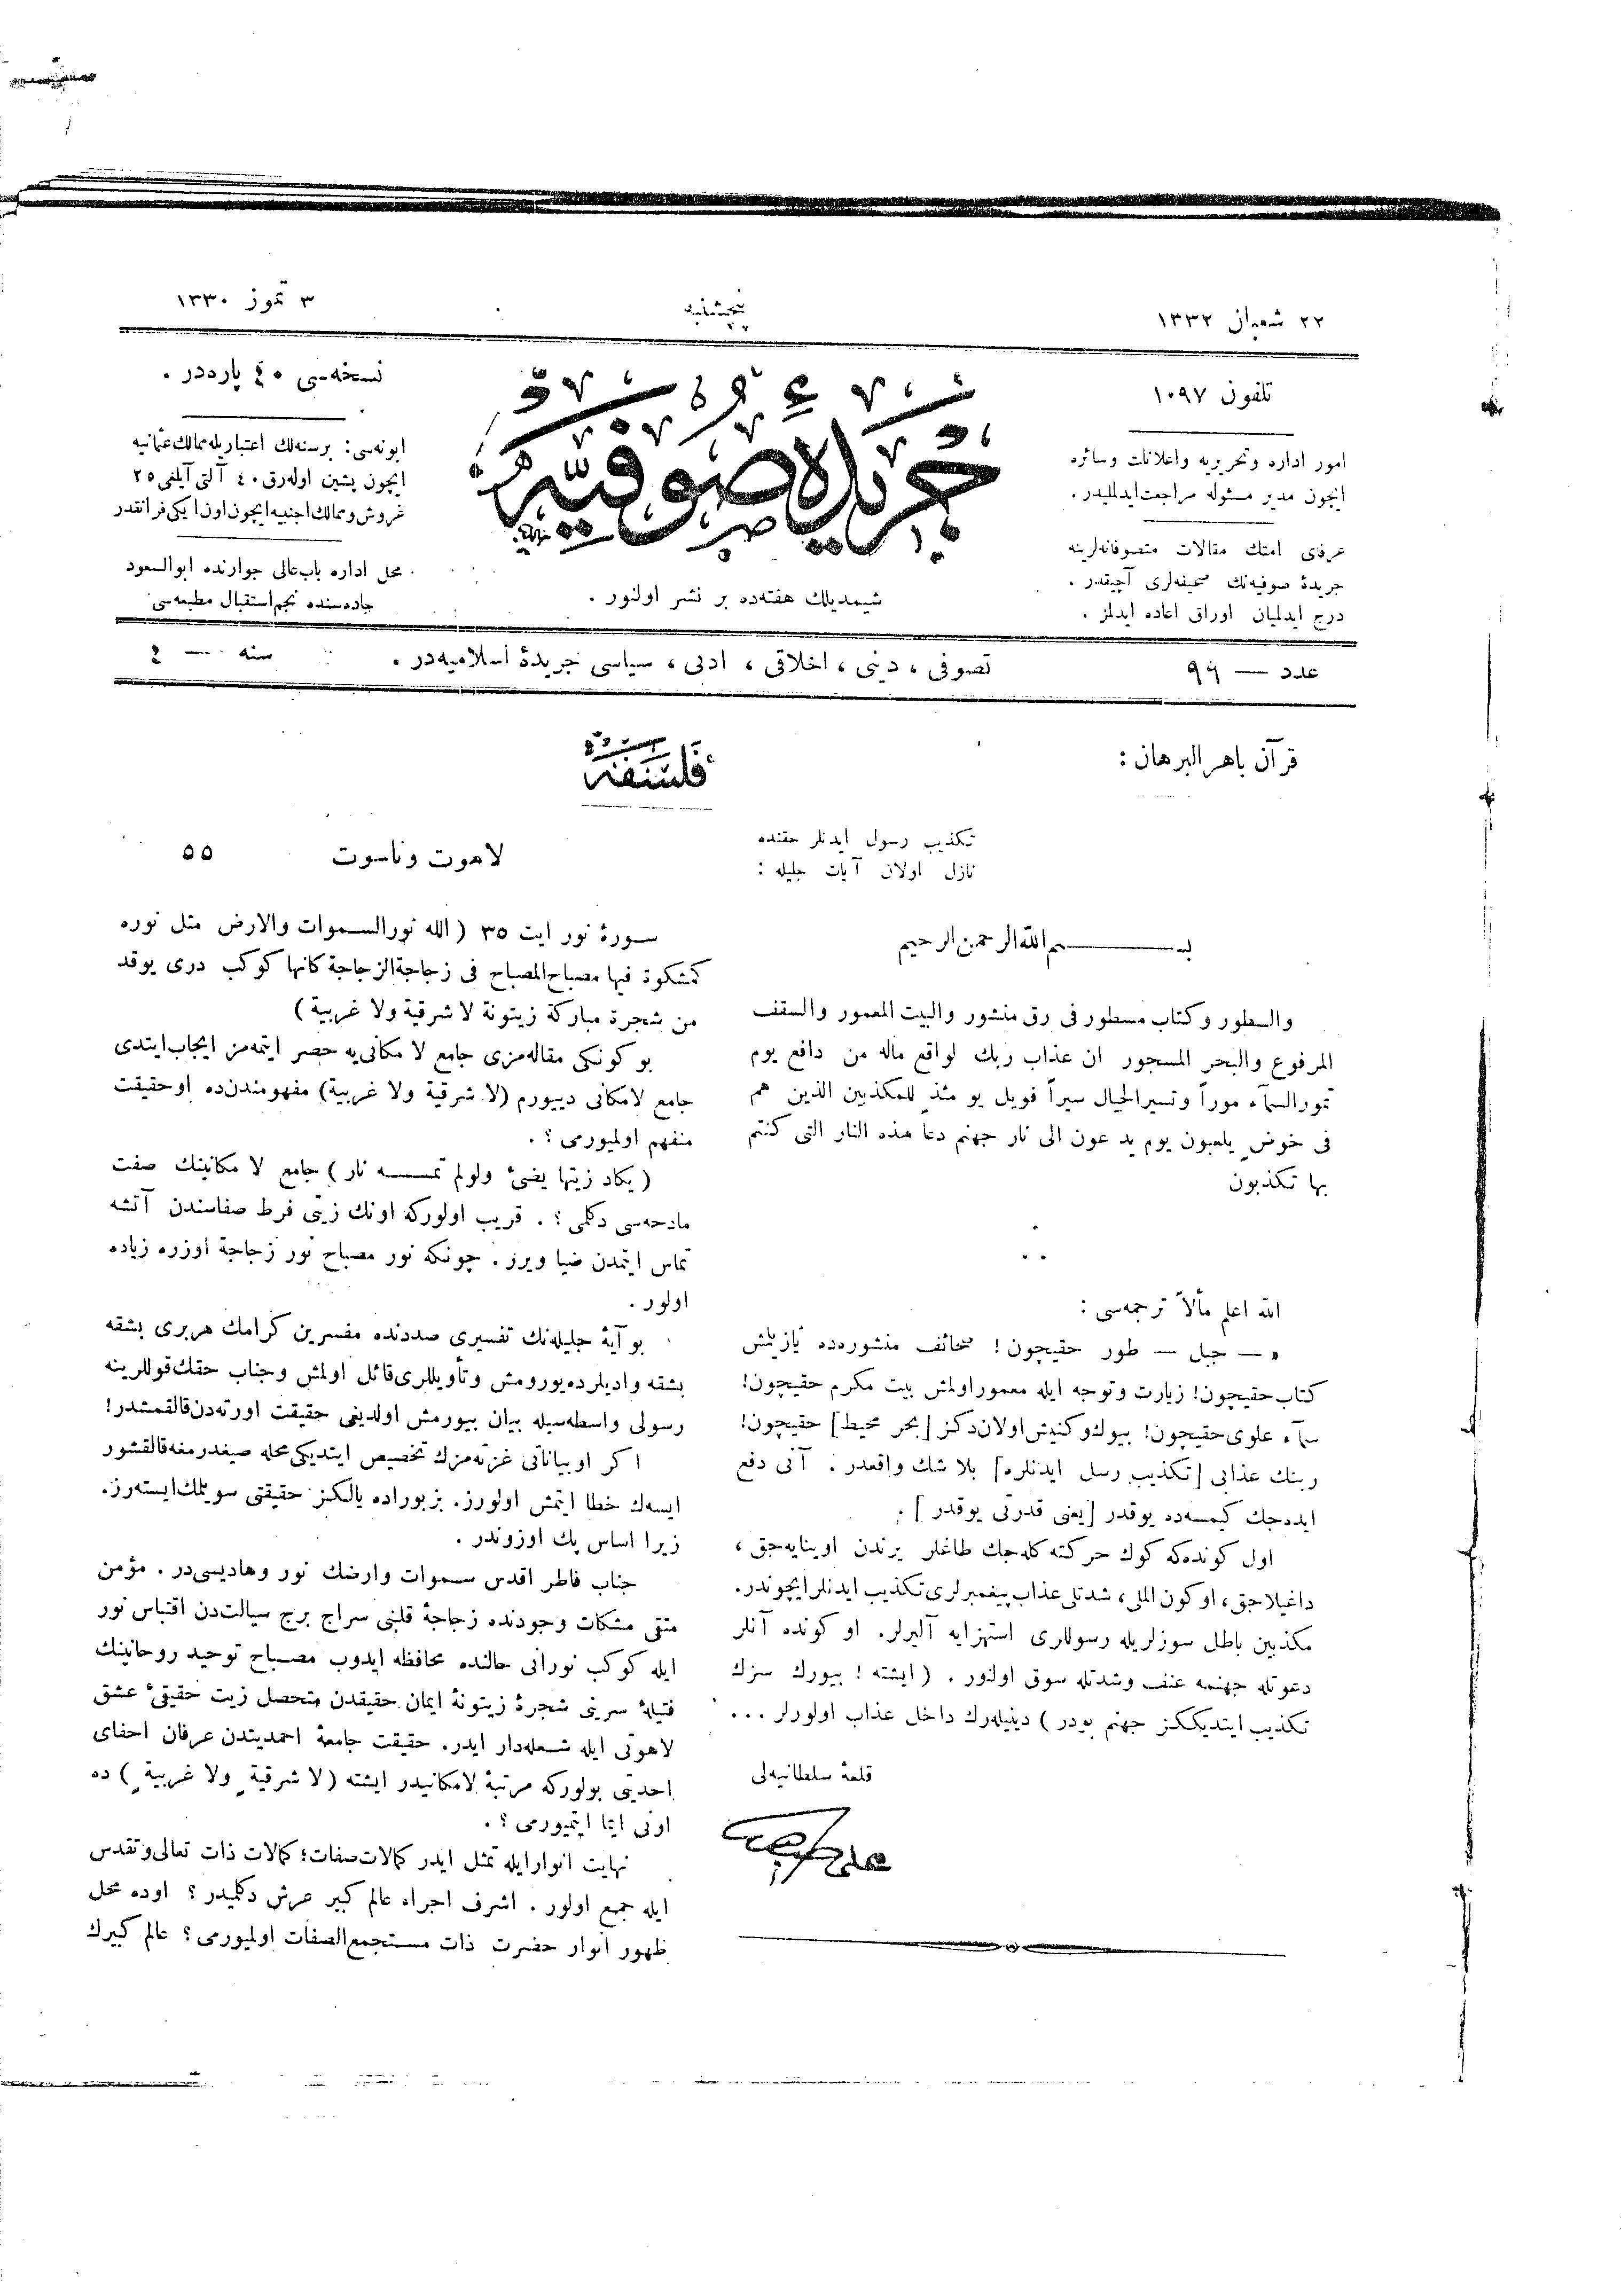 ٢٢ شعبان ١٣٣٢
پنجشنبه
٣ تموز ١٣٣٠
تلفون ١٠٩٧
امور اداره وتحريريه واعلانات وسائره
ايچون مدير مسئوله مراجعت ايدلمليدر.
عرفاى امتك مقالات متصوفانه‌لرينه
جريدهٔ صوفيه‌نك صحيفه‌لرى آچيقدر.
درج ايدلميان اوراق اعاده ايدلمز.
جريدهٔ صوفيه
شيمديلك هفته‌ده بر نشر اولنور.
نسخه‌سى ٤٠ پاره‌در.
ابونه‌سى: برسنه‌لك اعتباريله ممالك عثمانيه
ايچون پشين اوله‌رق ٤٠ آلتى آيلغى ٢٥
غروش وممالك اجنبيه ايچون اون ايكى فرانقدر
محل اداره باب‌عالى جوارنده ابوالسعود
جاده‌سنده نجم‌استقبال مطبعه‌سى
عدد — ٩٩
تصوفى، دينى، اخلاقى، ادبى، سياسى جريدهٔ اسلاميه‌در.
سنه — ٤
قرآن باهر البرهان:
تكذيب رسول ايدنلر حقنده
نازل اولان آيات جليله:
بسم الله الرحمن الرحيم
والطور وكتاب مسطور فى رق منشور والبيت المعمور والسقف
المرفوع والبحر المسجور ان عذاب ربك لواقع ماله من دافع يوم
تمورالسمآء موراً وتسيرالجبال سيراً فويل يو مئذٍ للمكذبين الذين هم
فى خوضٍ يلعبون يوم يد عون الى نار جهنم دعا هذه النار التى كنتم
بها تكذبون
الله اعلم مألاً ترجمه‌سى:
« — جبل — طور حقيچون! صحائف منشوره‌ده يازيلمش
كتاب حقيچون! زيارت وتوجه ايله معمور اولمش بيت مكرم حقيچون!
سمآء علوى حقيچون! بيوك وكنيش اولان دكز [بحر محيط] حقيچون!
ربنك عذابى [تكذيب رسل ايدنلره] بلا شك واقعدر. آنى دفع
ايده‌جك كيمسه‌ده يوقدر [يعنى قدرتى يوقدر].
اول كونده‌كه كوك حركته كله‌جك طاغلر يرندن اوينايه‌جق،
داغيلاجق، او كون الملى، شدتلى عذاب پيغمبرلرى تكذيب ايدنلر ايچوندر.
مكذبين باطل سوزلريله رسوللرى استهزايه آليرلر. او كونده آنلر
دعوتله جهنمه عنف وشدتله سوق اولنور. (ايشته! بيورك سزك
تكذيب ايتديككز جهنم بودر) دينيله‌رك داخل عذاب اولورلر...
قلعهٔ سلطانيه‌لى
فلسفه
لاهوت وناسوت ٥٥
سورهٔ نور ايت ٣٥ (الله نورالسموات والارض مثل نوره
كمشكوة فيها مصباح‌المصباح فى زجاجةالزجاجة كانها كوكب درى يوقد
من شجرة مباركة زيتونة لا شرقية ولا غربية)
بو كونكى مقاله‌مزى جامع لا مكانى‌يه حصر ايتمه‌مز ايجاب ايتدى
جامع لامكانى دييورم (لا شرقية ولا غربية) مفهومندن‌ده او حقيقت
منفهم اولميورمى؟.
(يكاد زيتها يضئ ولولم تمسسه نار) جامع لا مكانينك صفت
مادحه‌سى دكلمى؟. قريب اولوركه اونك زيتى فرط صفاسندن آتشه
تماس ايتمدن ضيا ويرز. چونكه نور مصباح نور زجاجة اوزره زياده
اولور.
بو آيهٔ جليله‌نك تفسيرى صددنده مفسرين كرامك هربرى بشقه
بشقه واديلرده يورومش وتأويللرى قائل اولمش وجناب حقك قوللرينه
رسولى واسطه‌سيله بيان بيورمش اولديغى حقيقت اورته‌دن قالقمشدر!
اكر او بياناتى غزته‌مزك تخصيص ايتديكى محله صيغدرمغه قالقشور
ايسه‌ك خطا ايتمش اولورز. بز بوراده يالكز حقيقتى سويلمك ايسته‌رز.
زيرا اساس پك اوزوندر.
جناب فاطر اقدس سموات وارضك نور وهاديسى‌در. مؤمن
متقى مشكات وجودنده زجاجهٔ قلبنى سراج برج سيالت‌دن اقتباس نور
ايله كوكب نورانى حالنده محافظه ايدوب مصباح توحيد روحانينك
فتيلهٔ سرينى شجرهٔ زيتونهٔ ايمان حقيقدن متحصل زيت حقيقىٔ عشق
لاهوتى ايله شعله‌دار ايدر. حقيقت جامعهٔ احمديتدن عرفان احفاى
احديتى بولوركه مرتبهٔ لامكانيدر ايشته (لا شرقيةٍ ولا غربيةٍ) ده
اونى ايما ايتميورمى؟.
نهايت انوار ايله تمثل ايدر كمالات صفات؛ كمالات ذات تعالى وتقدس
ايله جمع اولور. اشرف اجراء عالم كبير عرش دكليدر؟ اوده محل
ظهور انوار حضرت ذات مستجمع‌الصفات اولميورمى؟ عالم كبيرك